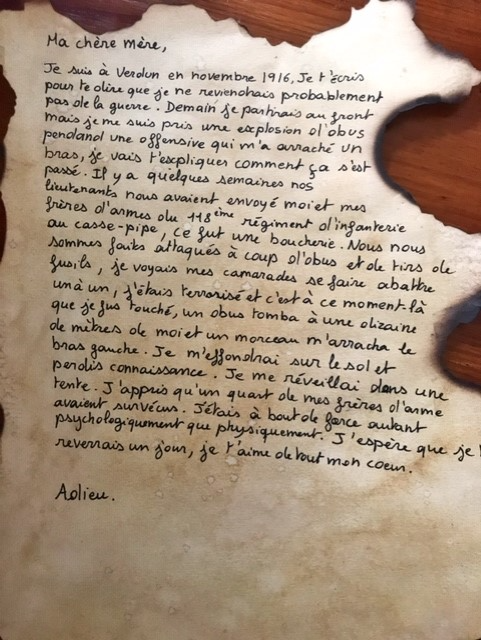 Ma chère mère,
Je suis à Verdun en novembre 1916, Je t'écris
pour te dire que je ne reviendrais probablement
pas de la guerre. Demain je partirais au front
mais je me suis pris une explosion d'obus
pendand une offensive qui m'a arraché un
bras, je vais t'expliques comment ça s'est
passé. Il y a quelques semaines nos
lieutenants nous avaient envoyé moi et mes
frères d'armes du 118ème régiment d'infanterie
au casse-pipe, ce fut une boucherie. Nous nous
sommes faits attaqués à coup d'obus et de tirs de
fusils, je voyais mes camarades se faire abattre
un à un, j'étais terrorisé et c'est à ce moment-là
que je fus touché, un obus tomba à une dizaine
de mètres de moi et un morceau m'arracha le
bras gauche. Je m'effondrai sur le sol et
perdis connaissance. Je me réveillai dans une
tente. J'appris qu'un quart de mes frères d'arme
avaient survécus. J'étais à bout de force autant
psychologiquement que physiquement. J'espère que je
reverrais un jour, je t'aime de tout mon coeur.
Adieu.